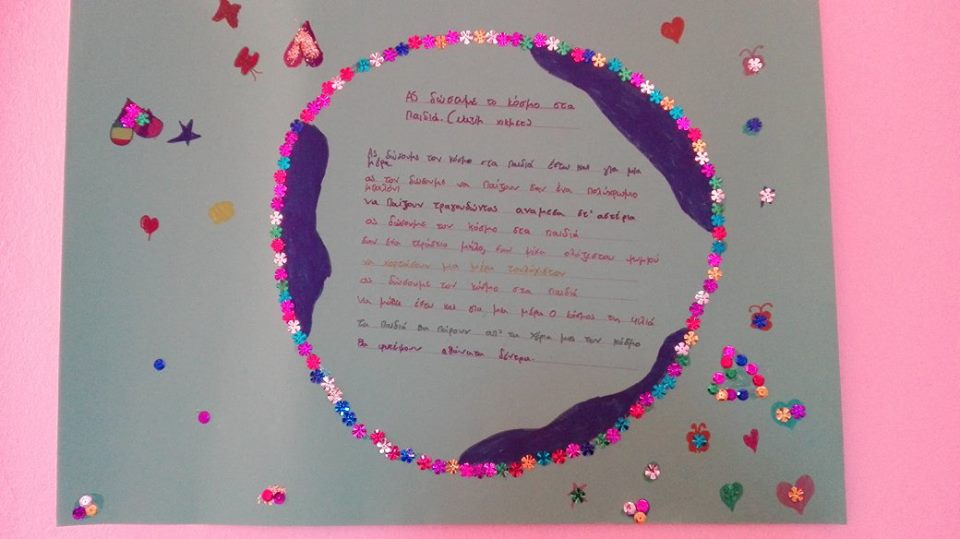 Ας δώσουμε το κόσμο στα
Παιδιά. (Ναζίμ χικμετ)
Ας δώσουμε τον κόσμο στα παιδιά έστω και για μια
μέρα
ας τον δώσουμε να παίζουν σαν ένα πολύχρωμο
μπαλόνι
να παίζουν τραγουδώντας ανάμεσα στ' αστέρια
ας δώσουμε τον κόσμο στα παιδιά
σαν ένα τεράστιο μήλο, σαν μια ολόζεστου ψωμιού
να χορτάσουν μια μέρα τουλάχιστον
ας δώσουμε τον κόσμο στα παιδιά
να μάθει έστω και για μια μέρα ο κόσμος τη φιλιά
τα παιδιά θα πάρουν απ' τα χέρια μας τον κόσμο
θα φυτέψουν αθάνατα δέντρα.